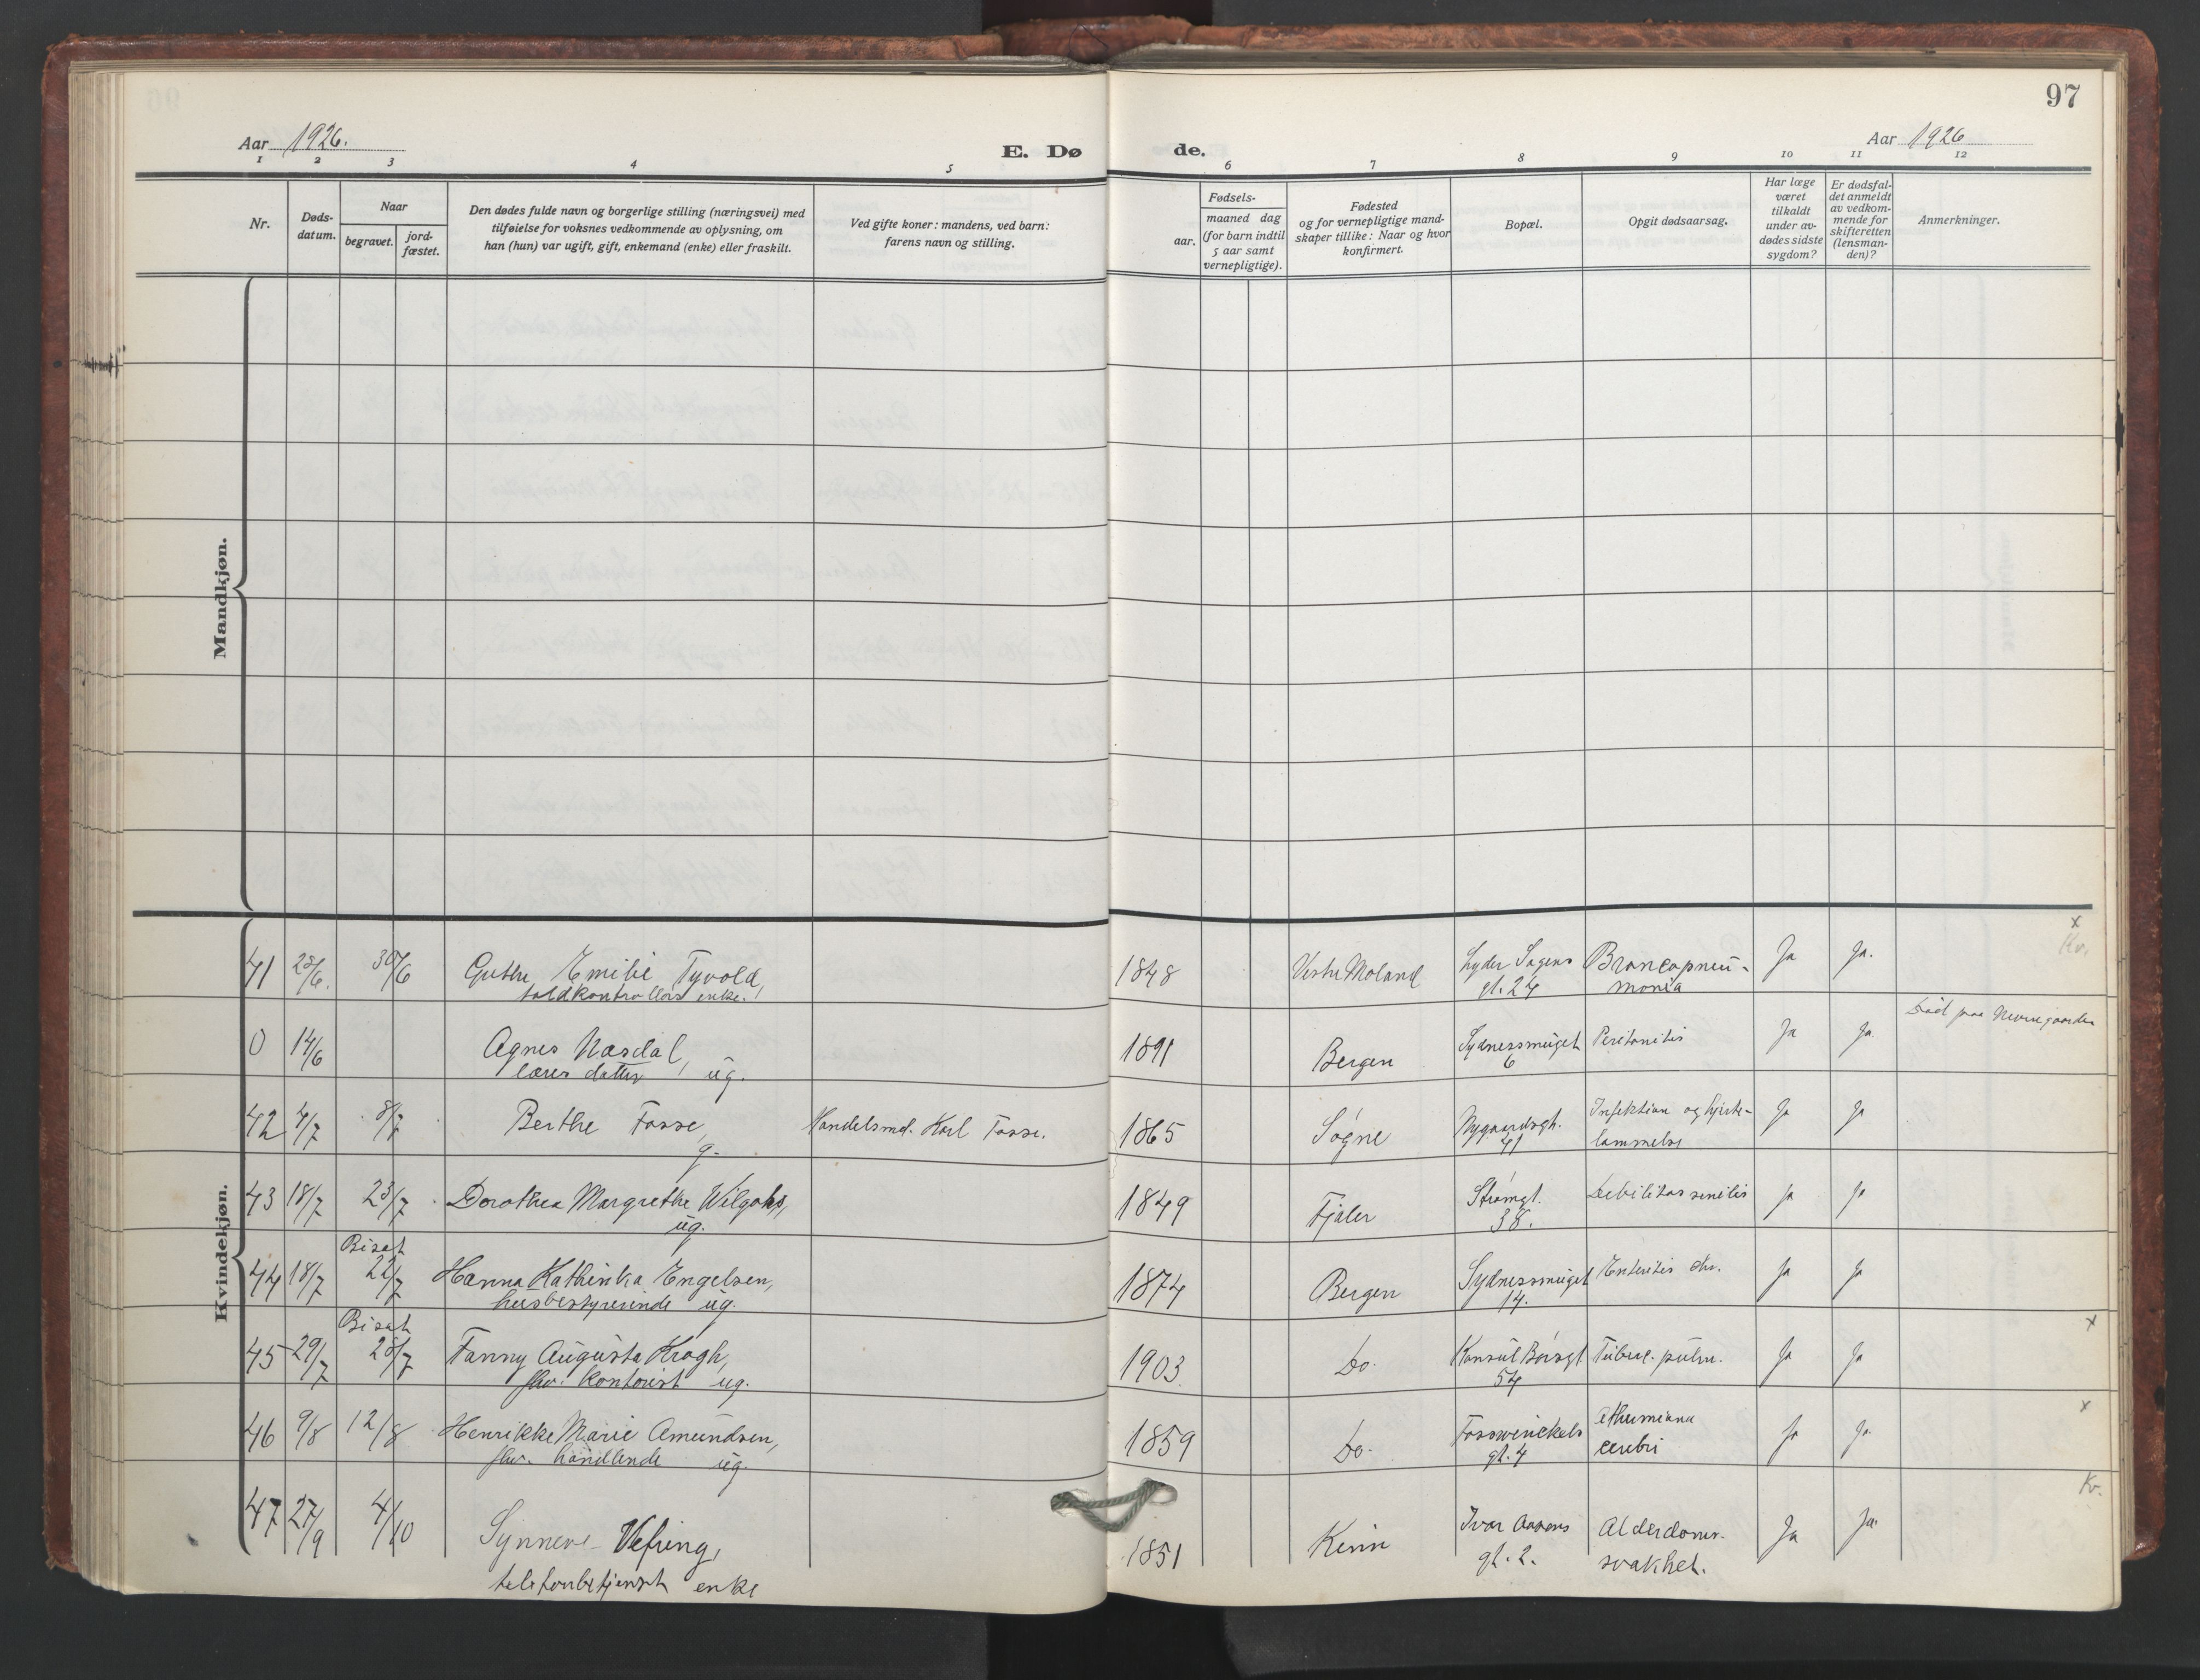 97
Aar 1926.
E. Dø
de.
Aar 1926
1 2 3 4 5 6 7 8 9 10 11 12
Nr.
Døds-
datum.
Naar
begravet.
jord-
fæstet.
Den dødes fulde navn og borgerlige stilling (næringsvei) med
tilføielse for voksnes vedkommende av oplysning, om
han (hun) var ugift, gift, enkemand (enke) eller fraskilt.
Ved gifte koner: mandens, ved barn:
farens navn og stilling.
Fødsels-
aar.
maaned dag
(for barn indtil
5 aar samt
vernepligtige).
Fødested
og for vernepligtige mand-
skaper tillike: Naar og hvor
konfirmert.
Bopæl.
Opgit dødsaarsag.
Har læge
været
tilkaldt
under av-
dødes sidste
sygdom?
Er dødsfal-
det anmeldt
av vedkom-
mende for
skifteretten
(lensman-
den)?
Anmerkninger.
Mandkjøn.
Kvindekjøn.
x
Kv.
41 28/6. 30/6 Guthe Emilie Tyvold, 1848 Vestre Moland Lyder Sagens Broncopneu- Ja Ja.
toldkontrollørs enke. gt. 24 monia
Død paa Neuregaarden
0 14/6 Agnes Næsdal, 1891 Bergen Sydnessmuget Peritonitis Ja Ja
lærer datter ug. 6
42 4/7 8/7 Berthe Fosse, Handelsmd. Karl Fosse. 1865 Søgne Nygaardsgt. Infektion og hjerte- Ja Ja
g. 41 lammelse
43 18/7 23/7 Dorothea Margrethe Wilgohs, 1849 Fjaler Strømgt. Debilitas senilis Ja Ja
ug. 38.
Bisat
44 18/7 22/7 Hanna Kathinka Engelsen, 1874 Bergen Sydnessmuget Enteritis chr. Ja Ja
husbestyrerinde ug. 14.
Bisat
x
45 29/7 28/7 Fanny Augusta Krogh, 1903 Do. Konsul Børsgt Tuberc. pulm. Ja Ja
fhv. kontorist ug. 54
x
46 9/8 12/8 Henrikke Marie Amundsen, 1859 Do. Fosswinckels Ja Ja
fhv. handlende ug. gt. 4 cerebri
Kv.
47 27/9 4/10 Synneve Vefring, 1851 Kinn Ivar Aasens Alderdoms- Ja Ja.
telefonbetjent enke gt. 2. svakhet.